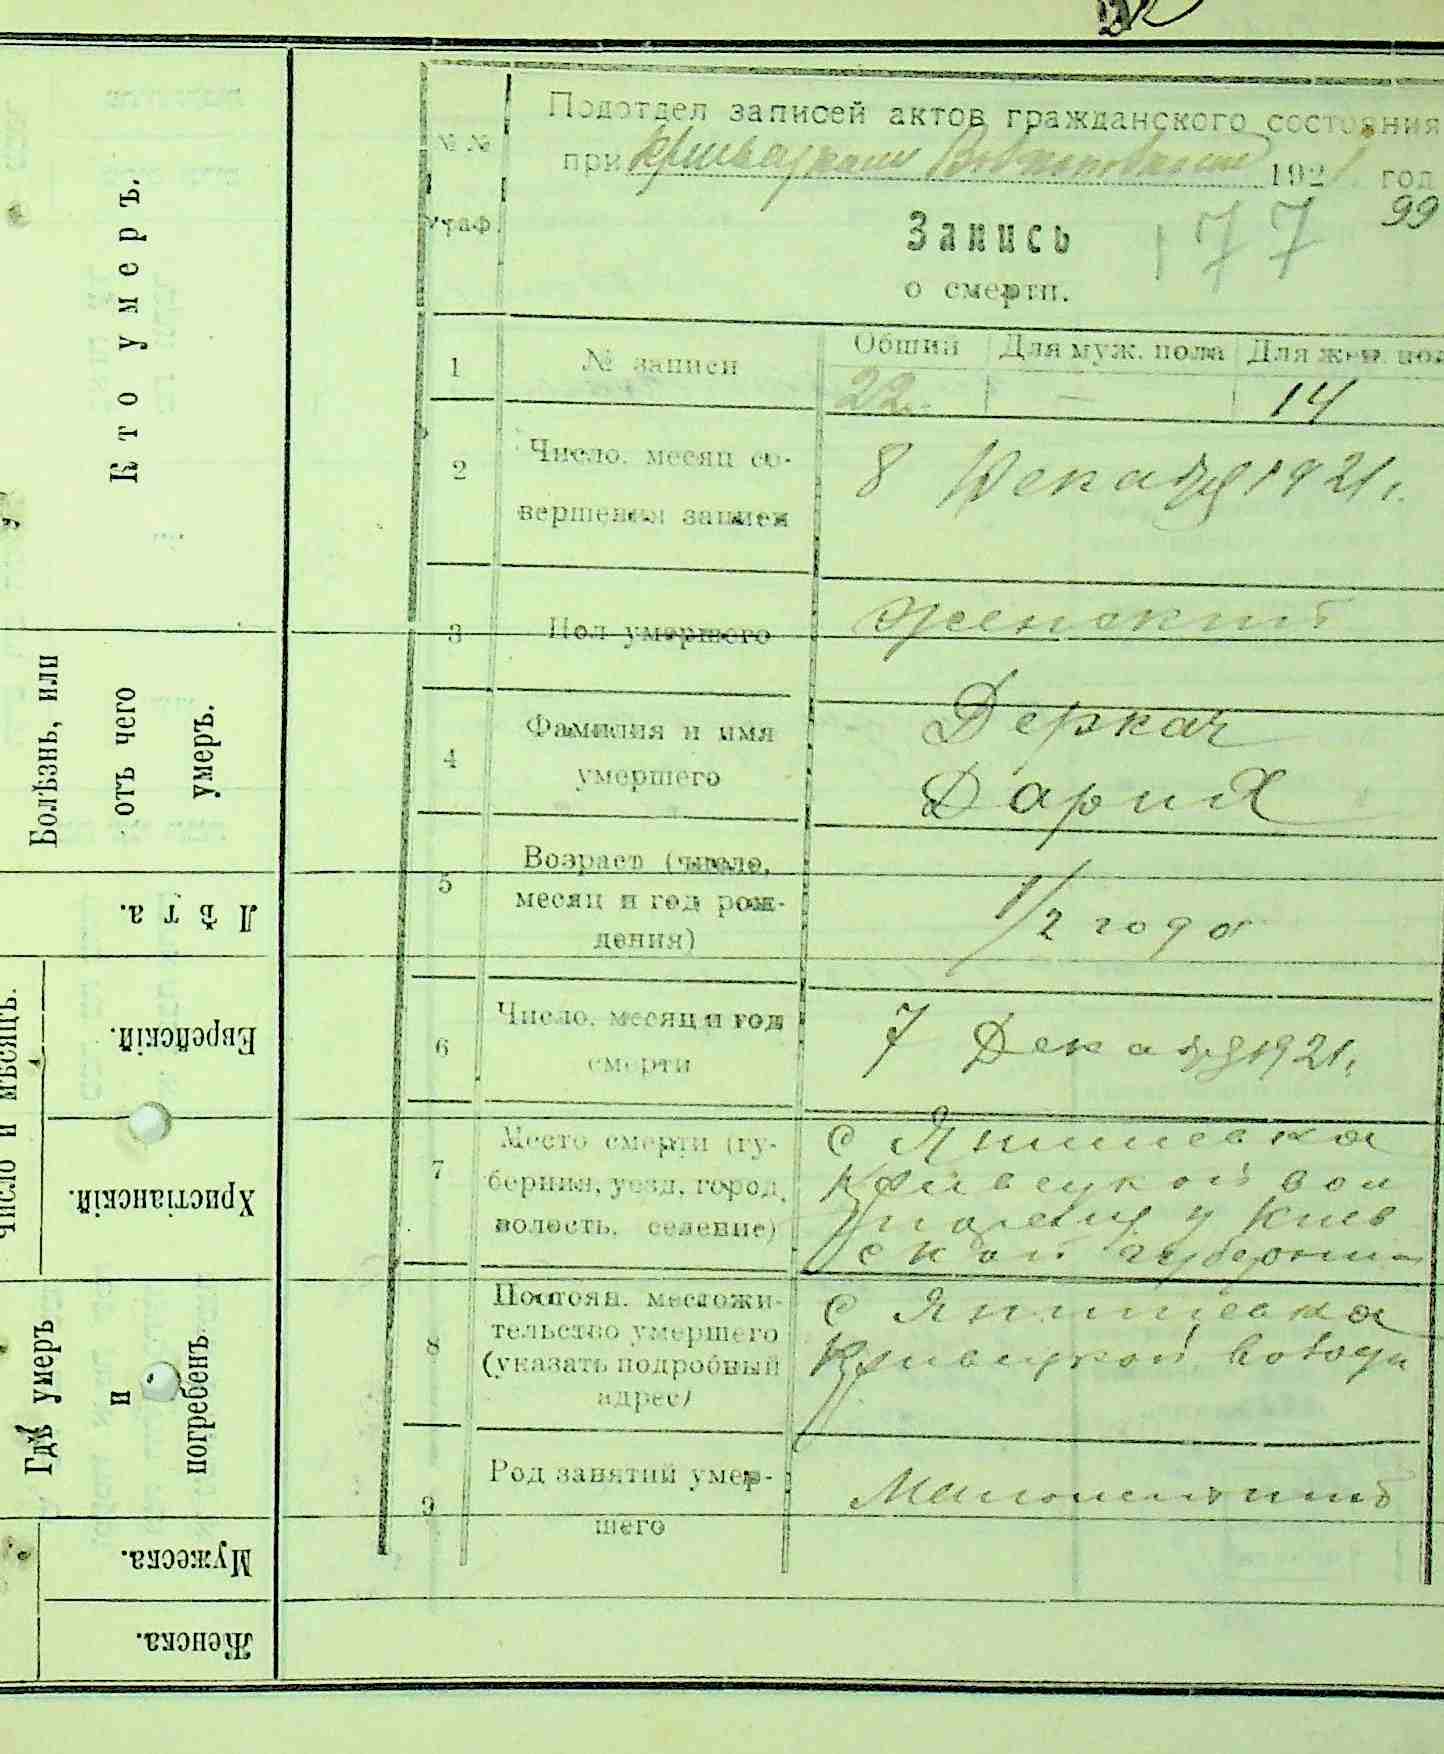 Кто умеръ.
Болѣзнь, или
отъ чего
умеръ.
Лѣта.
Число и мѣсяцъ.
Еврейскій.
Христіанскій.
Гдѣ умеръ
и
погребенъ
Мужеска.
Женска.
№ №
граф.
Подотдел записей актов гражданского состояния
при 1921 год
99
Запись 177
о смерти.
1 № записи Общий Для муж. пола Для жен. пол
22 — 14
2 Число, месяц со-
вершения записи
8 Декабря 1921 г.
3 Пол умершего женский
4 Фамилия и имя
умершего
Деркач
Дария
5 Возраст (число,
месяц и год рож-
дения)
1/2 года
6 Число, месяц и год
смерти
7 Декабря 1921 г.
7 Место смерти (гу-
берния, уезд, город,
волость, селение)
С Янишевка
Кривецкой вол
у Киев
ской губернии
8 Постоян. местожи-
тельство умершего
(указать подробный
адрес)
С Янишевка
Кривецкой
9 Род занятий умер-
шего